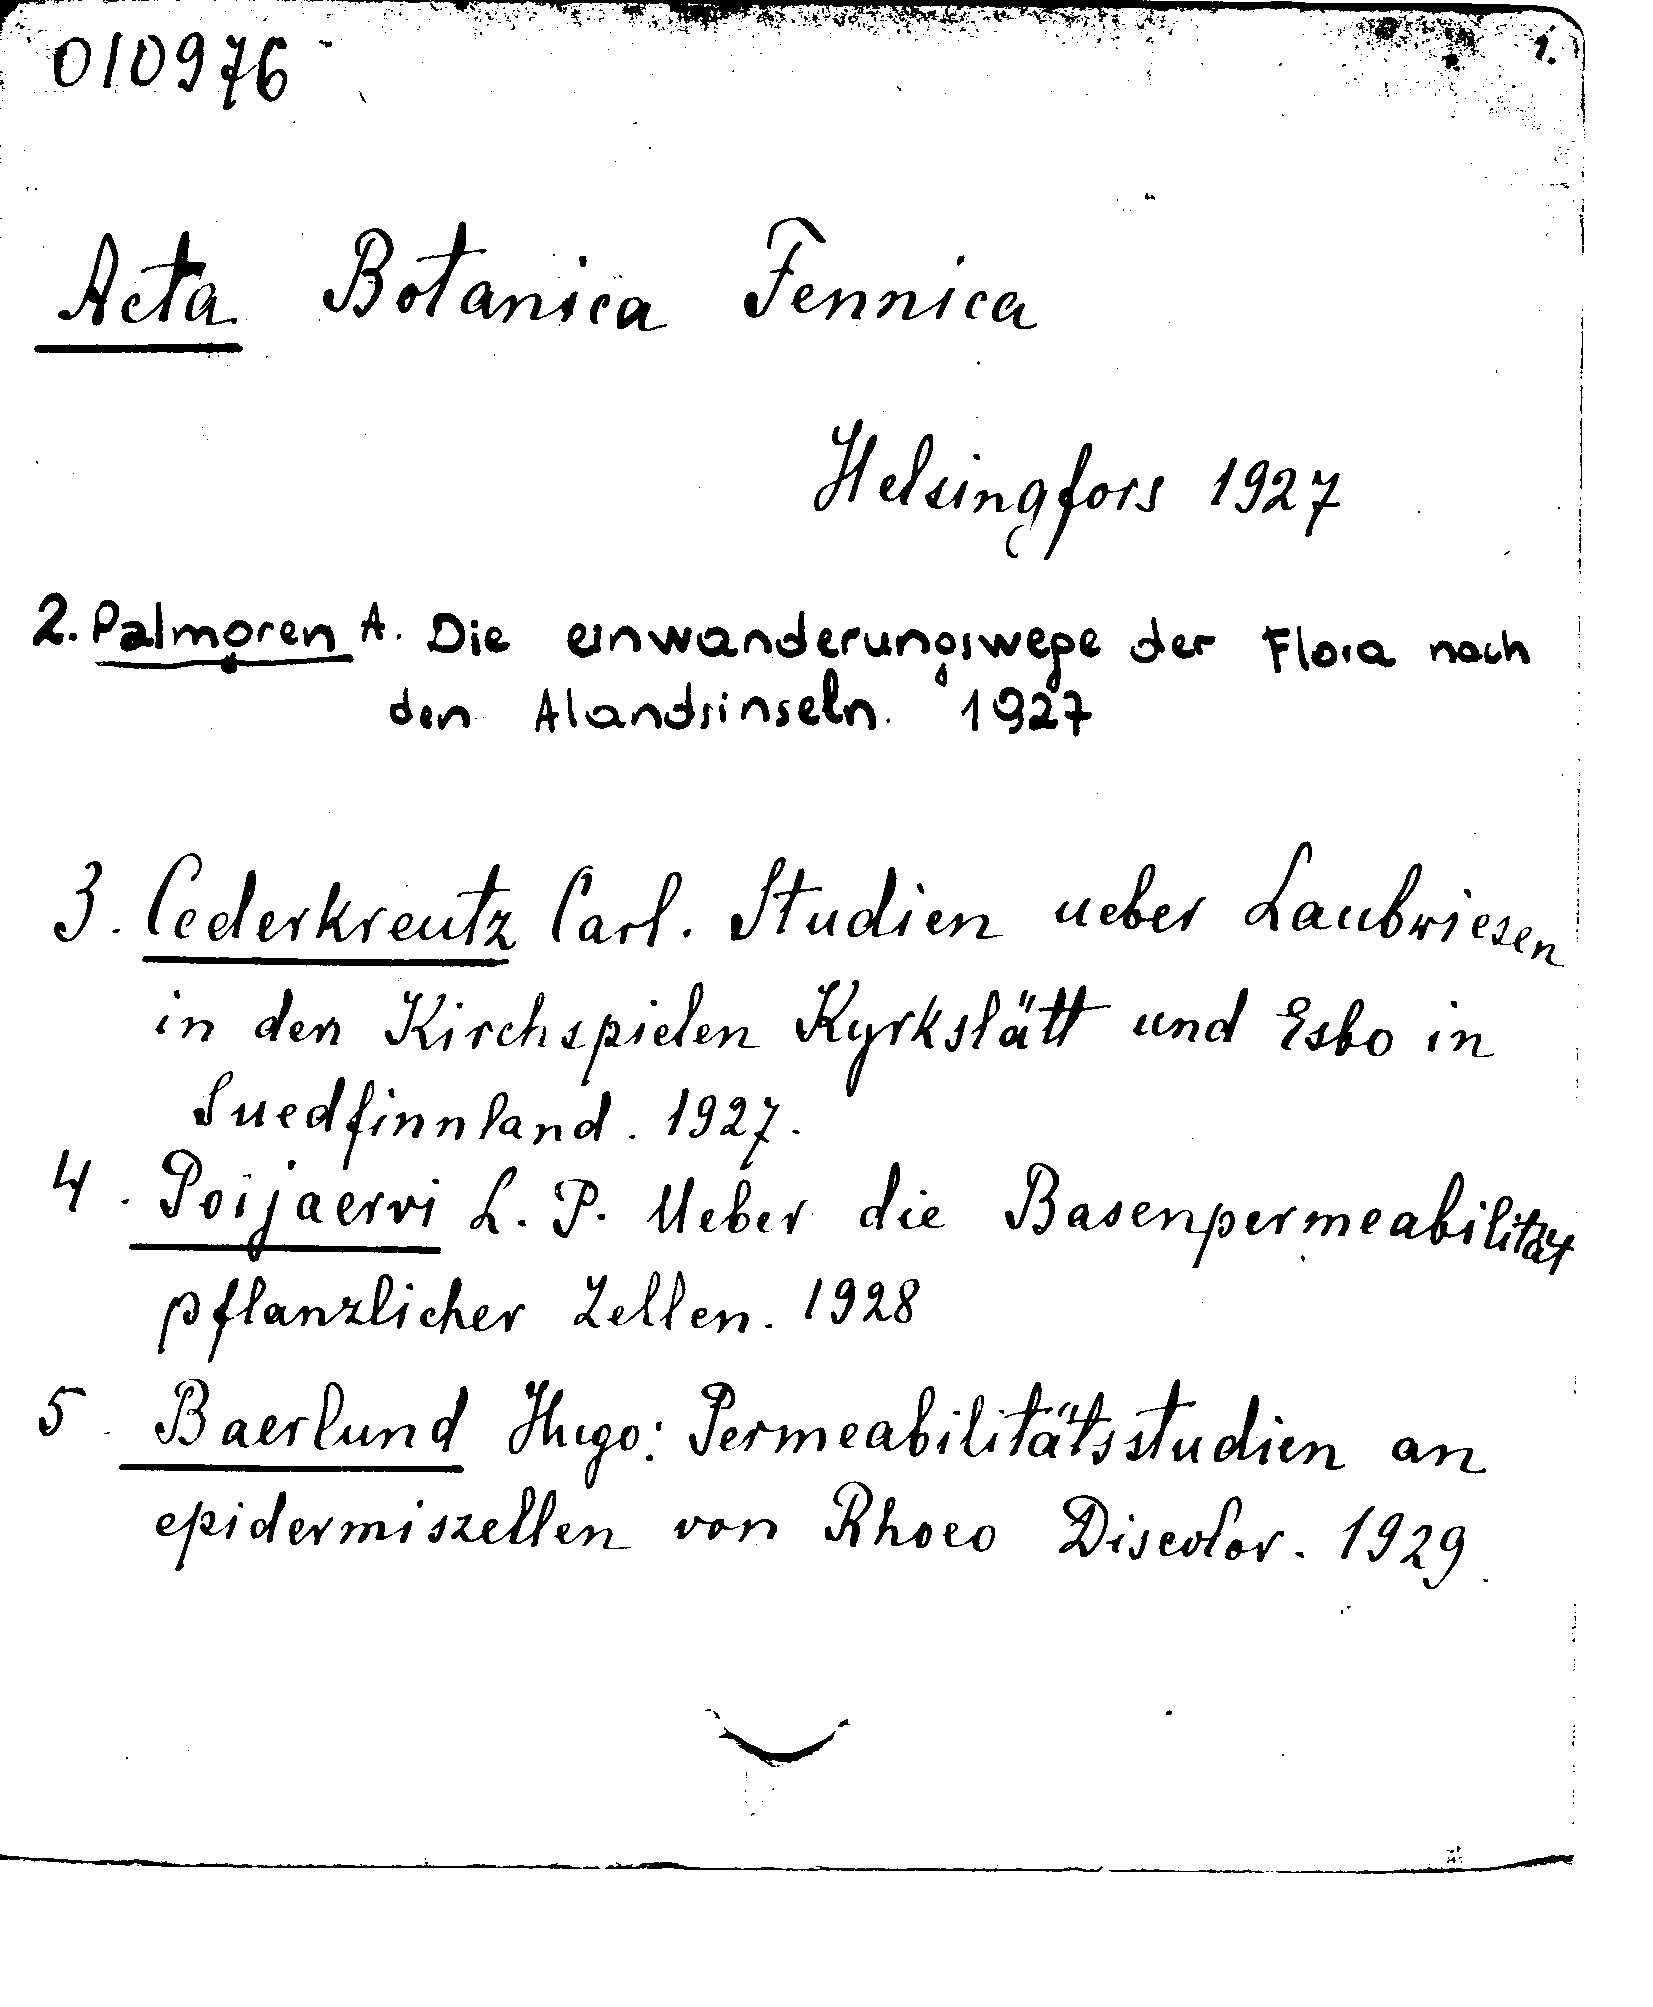 010976
1.
Acta Botanica Fennica
Helsingfors 1927
2. Palmgren A. Die einwanderungswege der Flora nach
den Alandsinseln. 1927
3. Cederkreutz Carl. Studien ueber Laubwiesen
in den Kirchspielen Kyrkslätt und Esbo in
Suedfinnland. 1927.
4. Poijaervi L. P. Ueber die Basenpermeabilität
pflanzlicher Zellen. 1928
5. Baerlund Hugo: Permeabilitätsstudien an
epidermiszellen von Rhoeo Discolor. 1929